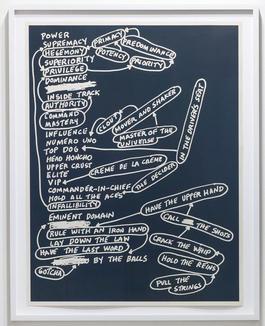 POWER
SUPREMACY
PRIMACY
PREDOMINANCE
HEGEMONY
POTENCY
SUPERIORITY
PRIORITY
PRIVILEGE
DOMINANCE
INSIDE TRACK
AUTHORITY
COMMAND
MASTERY
CLOUT
MOVER AND SHAKER
INFLUENCE
MASTER OF THE
UNIVERSE
NUMERO UNO
TOP DOG
HEAD HONCHO
UPPER CRUST
CRÈME DE LA CRÈME
IN THE DRIVER'S SEAT
ELITE
VIP
THE DECIDER
COMMANDER-IN-CHIEF
HOLD ALL THE ACES
INFALLIBILITY
HAVE THE UPPER HAND
EMINENT DOMAIN
CALL THE SHOTS
RULE WITH AN IRON HAND
LAY DOWN THE LAW
CRACK THE WHIP
HAVE THE LAST WORD
BY THE BALLS
HOLD THE REINS
GOTCHA
PULL THE
STRINGS